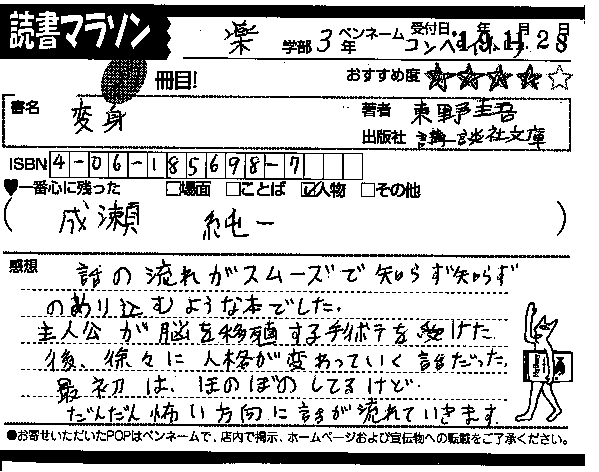 読書マラソン
楽 学部 3年 ペンネーム コンペイトウ
受付日 年 月 日
冊目!
おすすめ度 ★★★★☆
書名 変身
著者 東野圭吾
出版社 講談社文庫
ISBN 4-06-185698-7
♥一番心に残った □場面 □ことば ☑人物 □その他
(成瀬 純一)
感想 話の流れがスムーズで知らず知らず
のめり込むような本でした.
主人公が脳を移植する手術を受けた
後、徐々に人格が変わっていく話だった
最初は、ほのぼのしてるけど
だんだん怖い方向に話が流れていきます.
●お寄せいただいたPOPはペンネームで、店内で掲示、ホームページおよび宣伝物への転載をご了承ください。